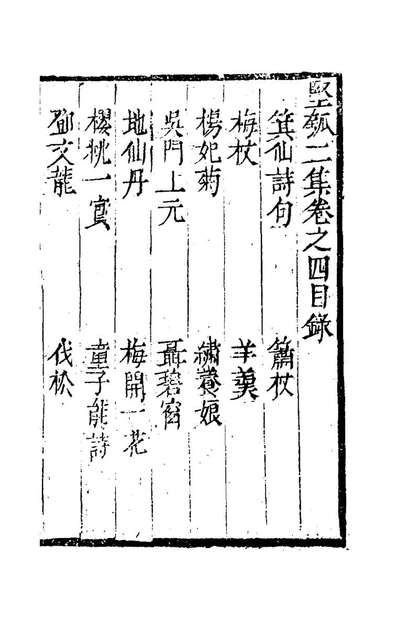 堅瓠二集卷之四目錄
箕仙詩句 簫杖
梅杖 羊羹
楊妃菊 繡養娘
吳門上元 聶碧窗
地仙丹 梅開一花
櫻桃一實 童子能詩
鄧文龍 伐松